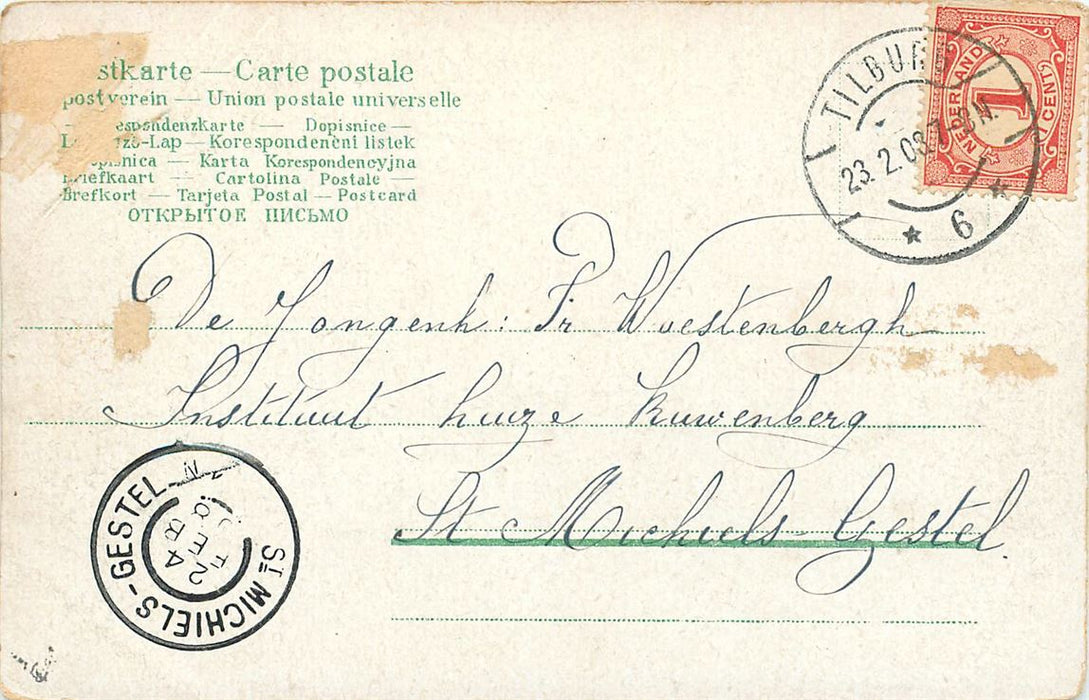 stkarte — Carte postale
postverein — Union postale universelle
espondenzkarte — Dopisnice —
Lap — Korespondenční listek
Karta Korespondencyjna
Briefkaart — Cartolina Postale —
Brefkort — Tarjeta Postal — Postcard
ОТКРЫТОЕ ПИСЬМО
TILBURG
23.2.08.7-8N.
6
NEDERLAND
1
1 CENT
De Jongenh: Fr Woestenbergh
Instituut huize Ruwenberg
St Michiels Gestel.
ST MICHIELS-GESTEL
24 FE